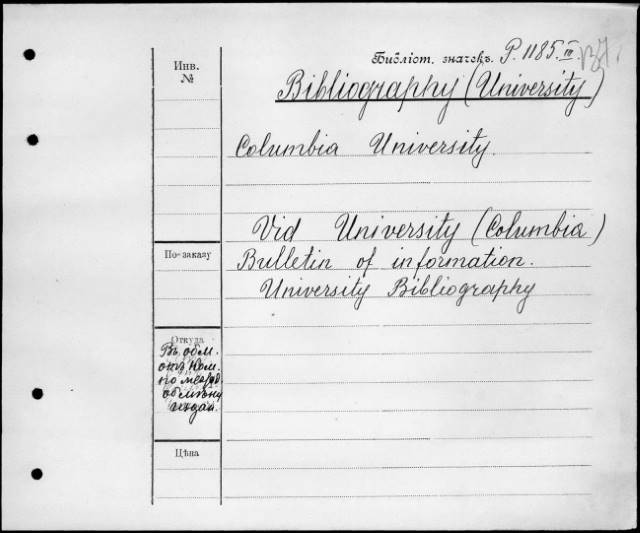 Инв.
№
Библіот. значекъ. P. 1185. III.
Bibliography (University)
Columbia University.
Vid University (Columbia)
Bulletin of information.
University Bibliography
По-заказу
Откуда
Въ обм.
отъ Ком.
по межд.
обмѣну
издан.
Цѣна